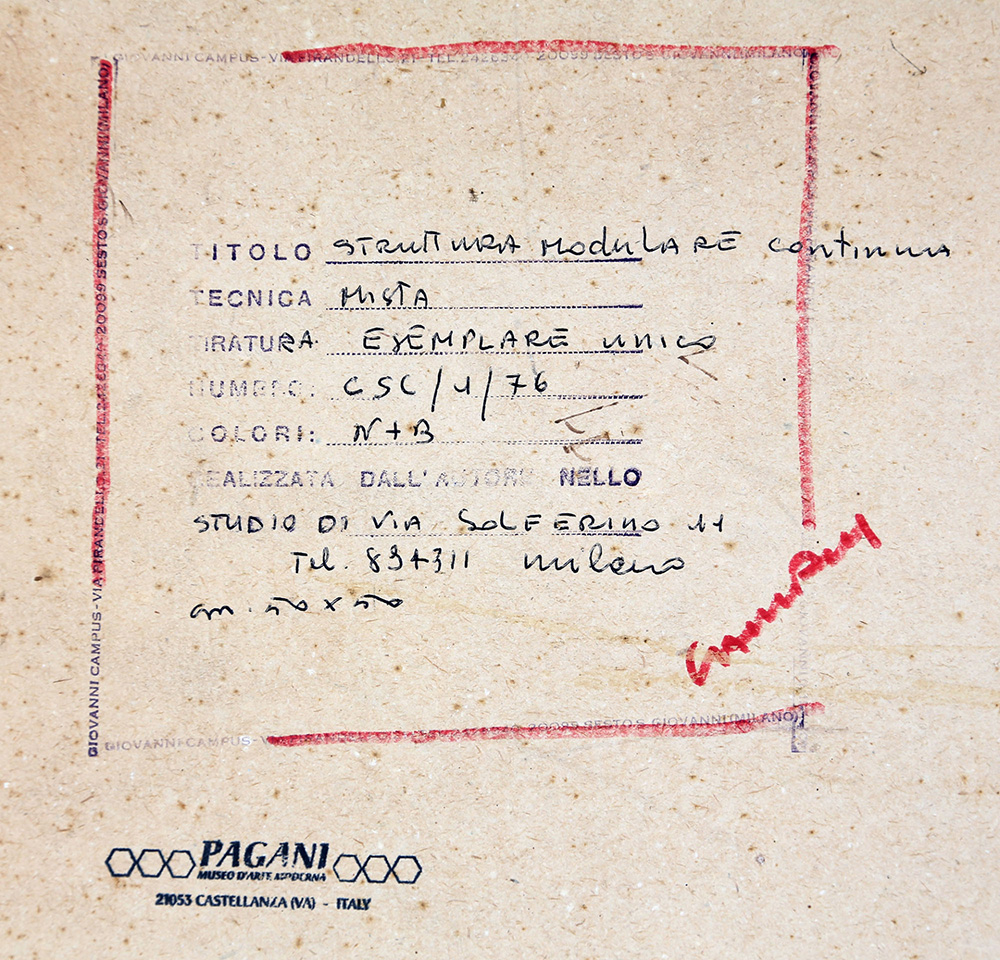 GIOVANNI CAMPUS - VIA PIRANDELLO, 21 TEL. 20099 SESTO S. GIOVANNI (MILANO)
GIOVANNI CAMPUS - VIA PIRANDELLO, 21 - TEL. 20099 SESTO S. GIOVANNI (MILANO)
TITOLO STRUTTURA MODULARE CONTINUA
TECNICA MISTA
TIRATURA ESEMPLARE UNICO
NUMERO: CSC/1/76
COLORI: N+B
REALIZZATA DALL'AUTORE NELLO
STUDIO DI VIA SOLFERINO 11
Tel. milano
cm. 50 x 50
GIOVANNI CAMPUS - 20099 SESTO S. GIOVANNI (MILANO)
PAGANI
MUSEO D'ARTE MODERNA
21053 CASTELLANZA (VA) - ITALY